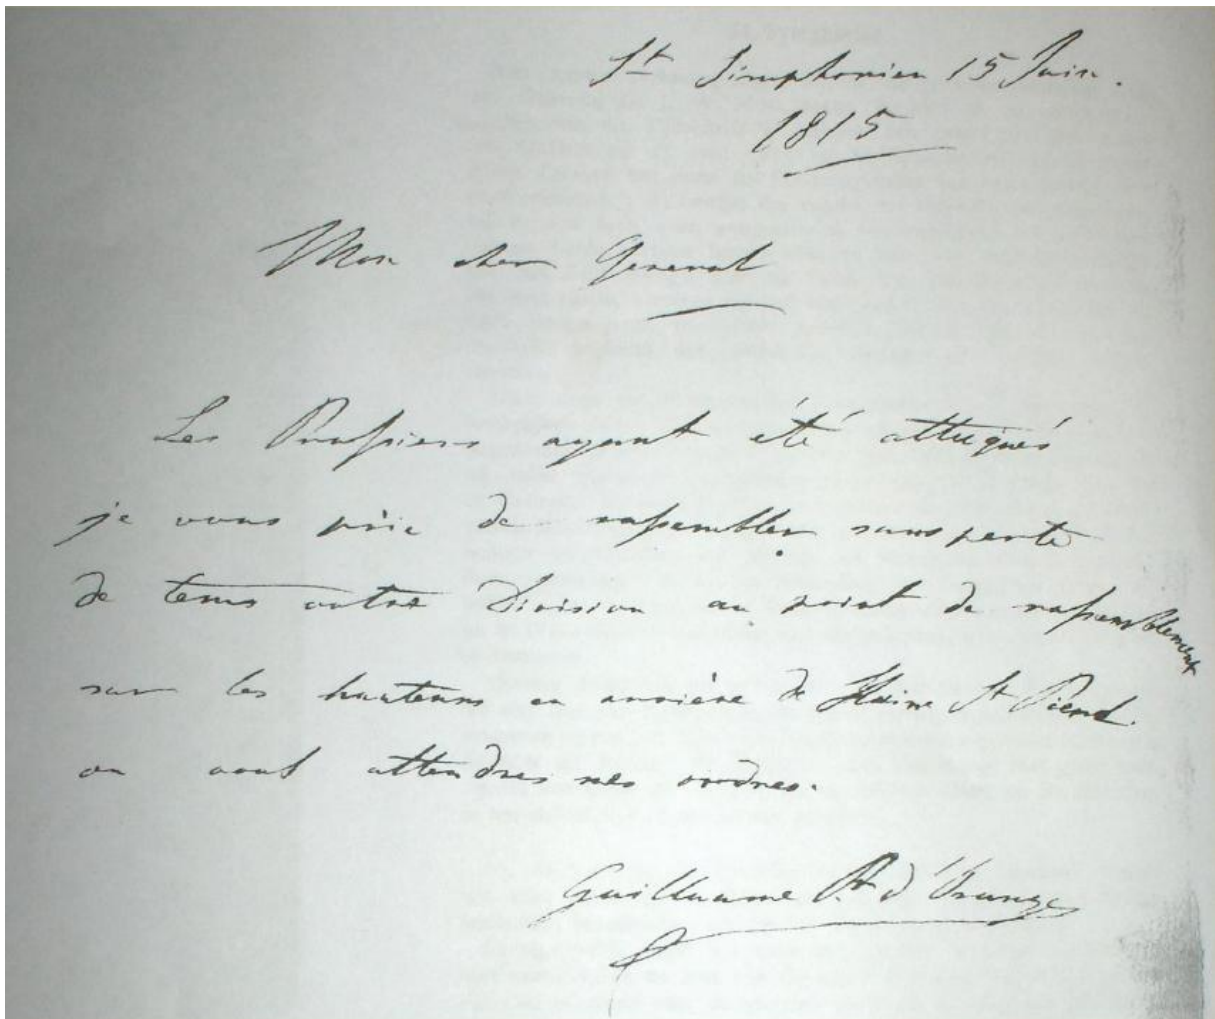 St Simphorien 15 Juin.
1815
Mon cher General
Les Prussiens ayant été attaqués
je vous prie de rassembler sans perte
de tems votre Division au point de rassemblement
sur les hauteurs en arrière de Haine St Pierre
ou vous attendres mes ordres.
Guillaume Pr. d'Orange